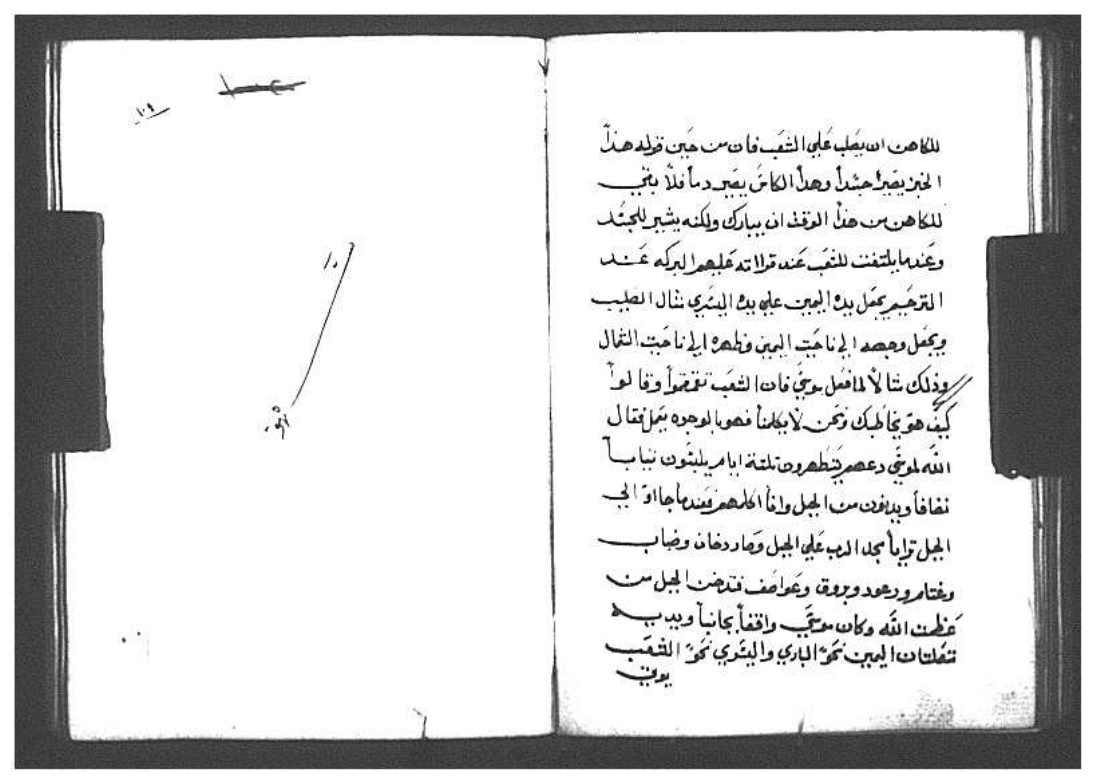 للكاهن ان يصلب علي الشعب فان من حين قوله هذا
الخبز يصير جسداً وهذا الكاس يصير دماً فلا يبقي
للكاهن من هذا الوقت ان يبارك ولكنه يشير للجسد
وعندما يلتفت للشعب عند قراته عليهم البركه عند
الترحيم يجعل يده اليمين علي يده اليسري مثال الصليب
ويجعل وجهه الي ناحيت اليمين وظهره الي ناحيت الشمال
وذلك مثالاً لما فعل موسي فان الشعب تقمقموا وقالوا
كيف هو يخاطبك ونحن لا يكلمنا فهو بالوجوه يعمل فقال
الله لموسي دعهم يتطهرون تلتة ايام يلبثون ثياباً
نظافاً ويدنون من الجبل وانا اكلمهم فعندما جااو الي
الجبل تراياً مجد الرب علي الجبل وصار دخان وضباب
وغتام ورعود وبروق وعواصف فتدخن الجبل من
عظمت الله وكان موسي واقفاً بجانباً ويديه
تتفلتان اليمين نحو الباري واليسري نحو الشعب
يوفي
١٠٩